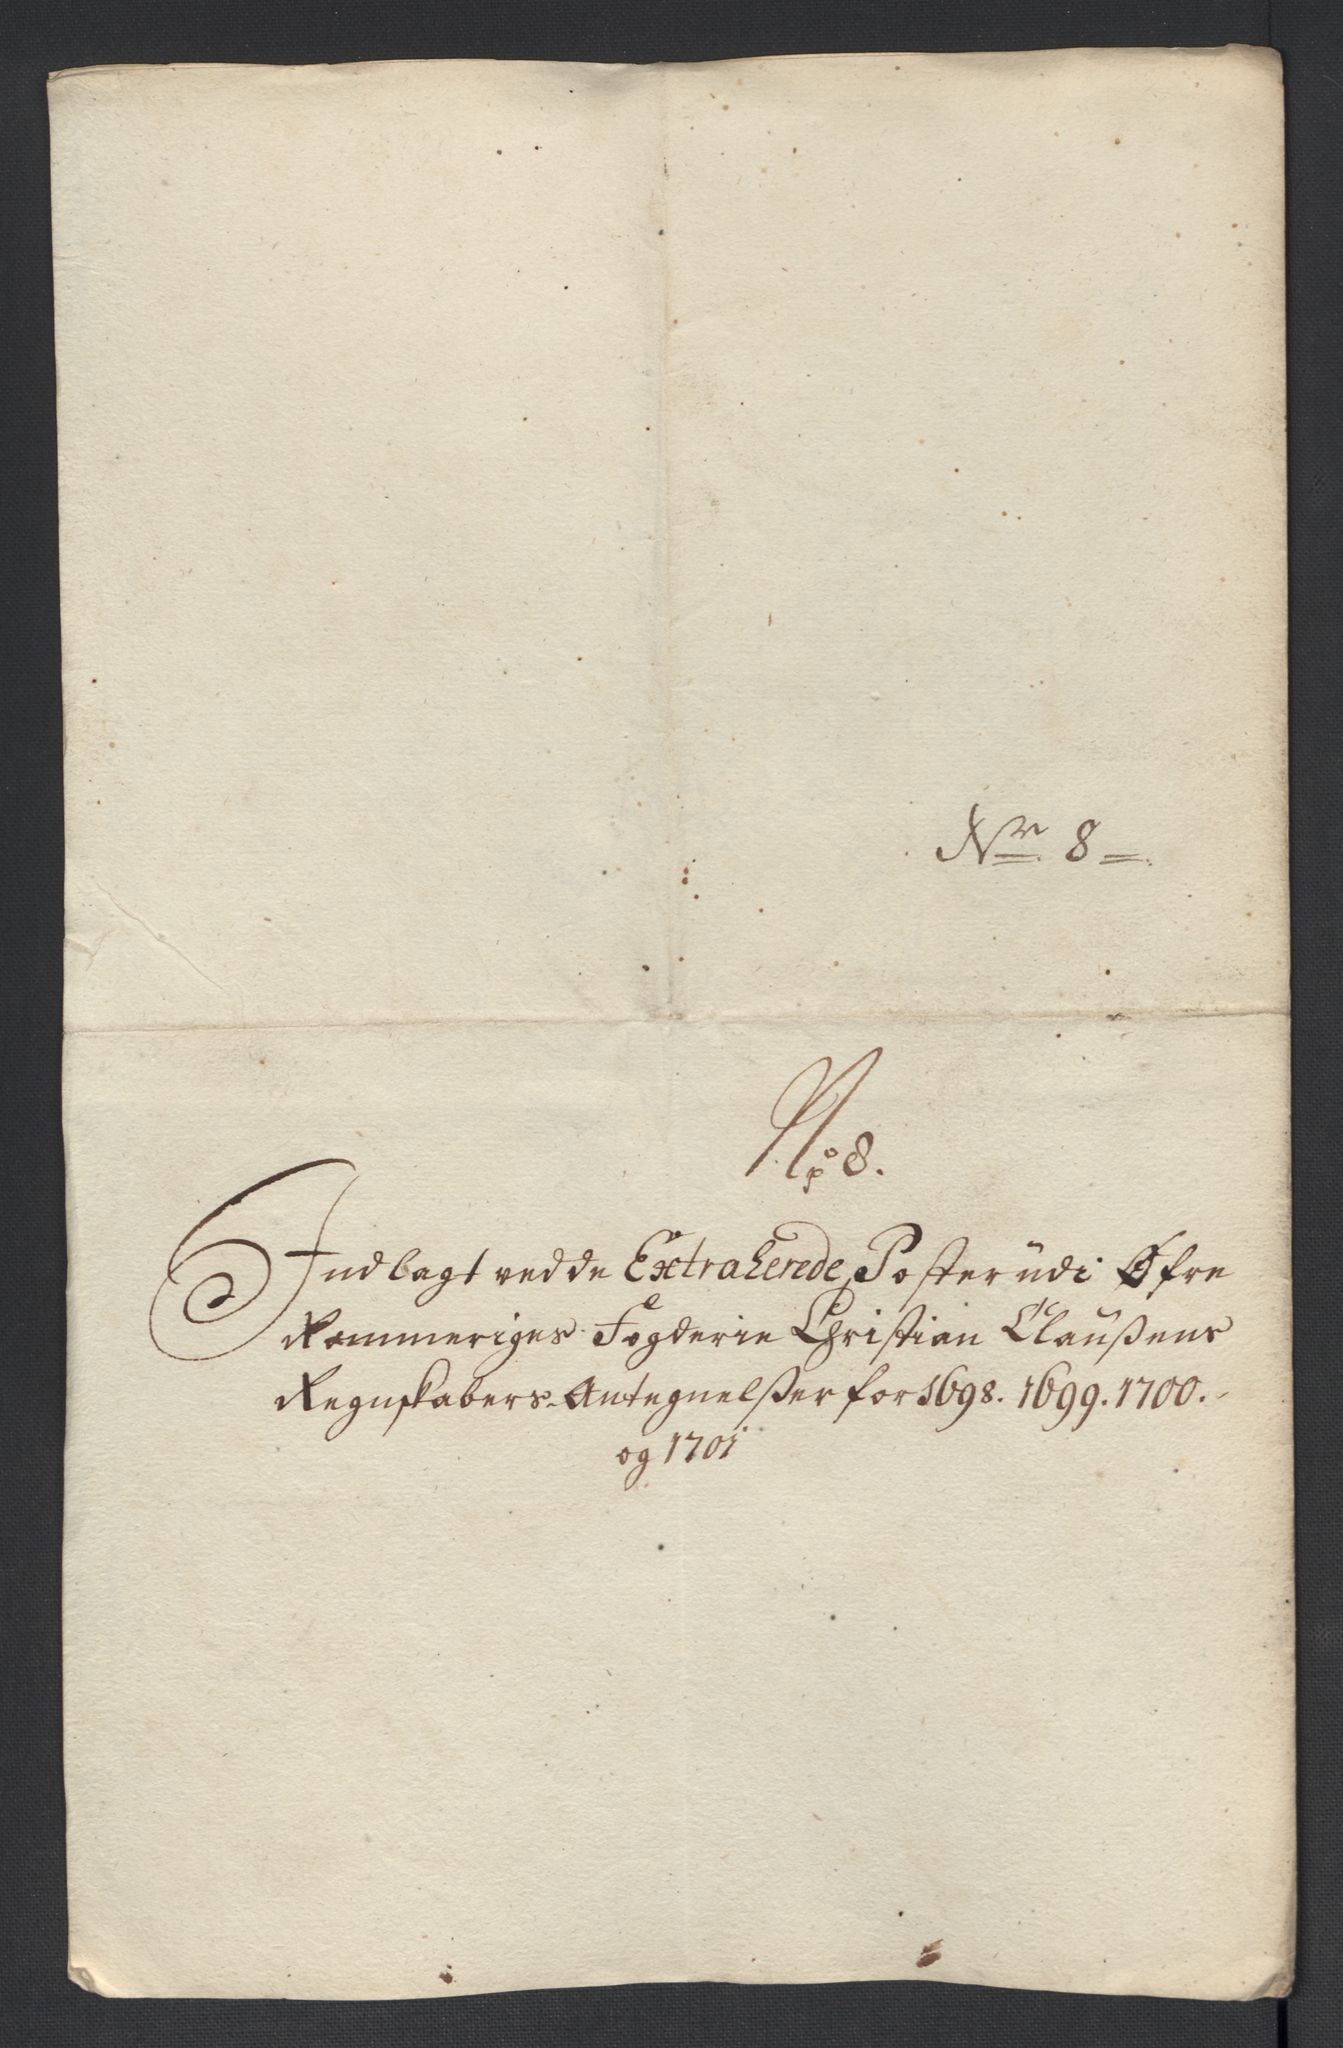 Nr 8
No 8.
Indlagt ved de Extraherede Poster udi Øfre
Rommeriges Fogderie Christian Claußens
Regnskabers Antegnelßer for 1698. 1699. 1700.
og 1701